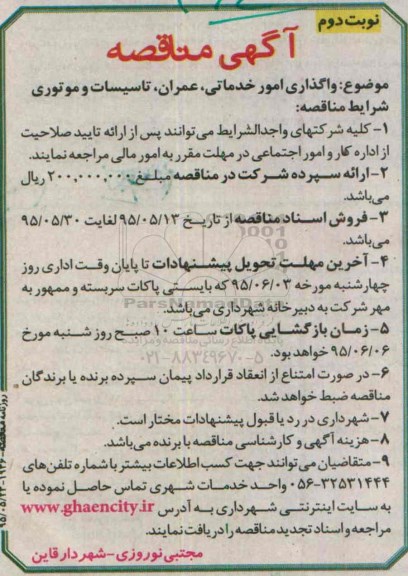 نوبت دوم
آگهی مناقصه
موضوع: واگذاری امور خدماتی، عمران، تاسیسات و موتوری
شرایط مناقصه:
۱- کلیه شرکتهای واجدالشرایط می توانند پس از ارائه تایید صلاحیت
از اداره کار و امور اجتماعی در مهلت مقرر به امور مالی مراجعه نمایند.
۲- ارائه سپرده شرکت در مناقصه مبلغ ۲۰۰,۰۰۰,۰۰۰ ریال
می باشد.
۳- فروش اسناد مناقصه از تاریخ ۹۵/۰۵/۱۳ لغایت ۹۵/۰۵/۳۰
می باشد.
۴- آخرین مهلت تحویل پیشنهادات تا پایان وقت اداری روز
چهارشنبه مورخه ۹۵/۰۶/۰۳ که بایستی پاکات سربسته و ممهور به
مهر شرکت به دبیرخانه شهرداری می باشد.
ParsNamadData
۵- زمان بازگشایی پاکات ساعت ۱۰ صبح روز شنبه مورخ
۹۵/۰۶/۰۶ خواهد بود.
۰۲۱-۸۸۳۴۹۶۷۰-۵
۶- در صورت امتناع از انعقاد قرارداد پیمان سپرده برنده یا برندگان
مناقصه ضبط خواهد شد.
۷- شهرداری در رد یا قبول پیشنهادات مختار است.
۸- هزینه آگهی و کارشناسی مناقصه با برنده می باشد.
۹- متقاضیان می توانند جهت کسب اطلاعات بیشتر با شماره تلفن های
۰۵۶-۳۲۵۳۱۴۴۴ واحد خدمات شهری تماس حاصل نموده یا
به سایت اینترنتی شهرداری به آدرس www.ghaencity.ir
مراجعه و اسناد تجدید مناقصه را دریافت نمایند.
مجتبی نوروزی - شهردار قاین